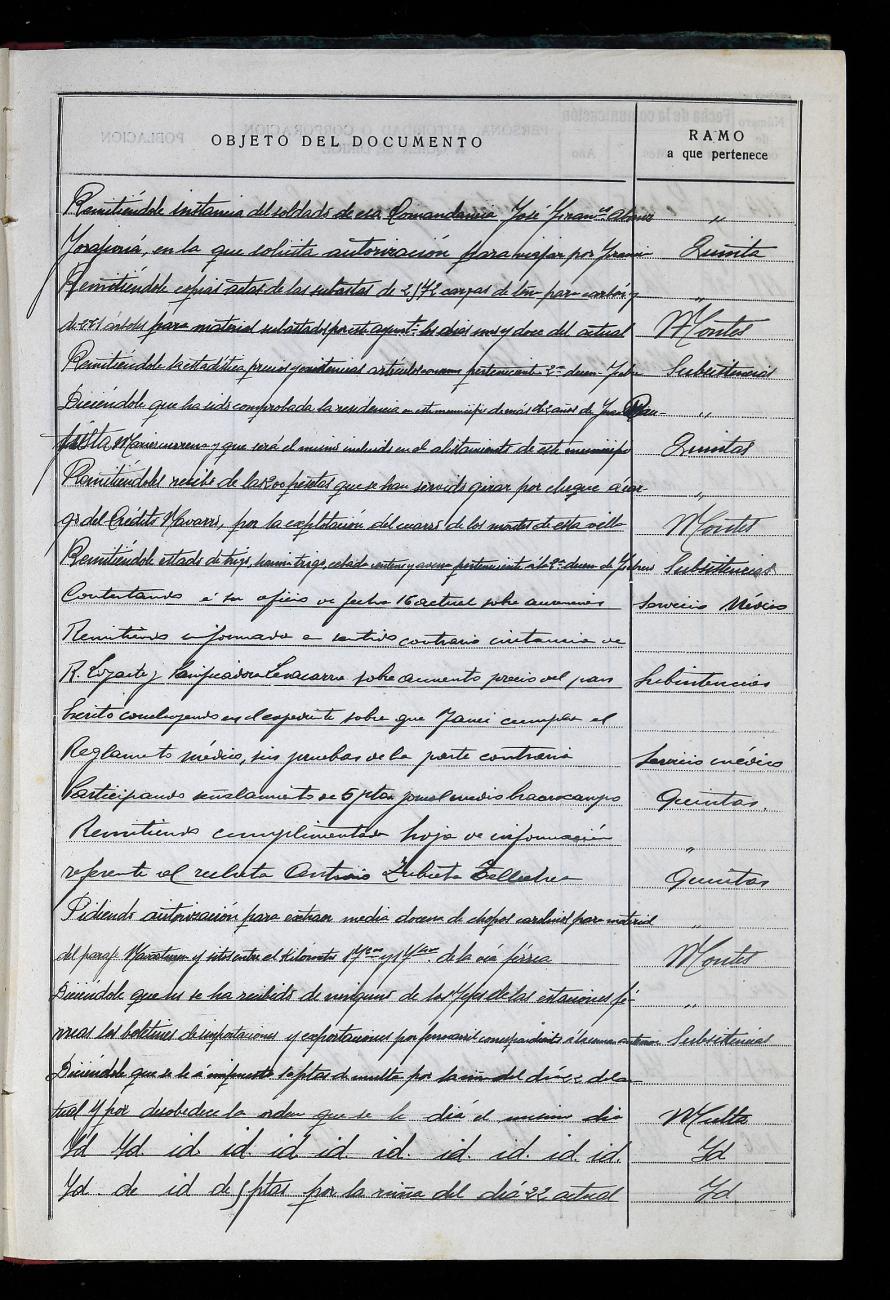 OBJETO DEL DOCUMENTO
RAMO
a que pertenece
Remitiéndole instancia del soldado de esa Comandancia José Franco "
en la que solicita autorización para viajar por Francia Quinta
Remitiéndole copias actas de las subastas de 2972 cargas de para carbón y "
árboles para material subastados por este ayunt.º los dias once y doce del actual Montes
Remitiéndole la estadística precios y existencias artículos pertenecient 2ª decen. Subsistencias
Diciéndole que ha sido comprobada la residencia en este municipio de más de 12 años de Juan Bau- "
tista y que será el mismo incluido en el alistamiento de este municipio Quintas
Remitiéndoles recibo de las 200 pesetas que se han servido girar por cheque á car- "
go del Crédito Navarro, por la explotación del cuarzo de los montes de esta villa Montes
Remitiéndole estado de trigo, harina trigo, cebada centeno y avena perteneciente á la 2ª decena de Febrero Subsistencias
Contestando á su oficio de fecha 16 actual sobre Servicio Médico
Remitiendo informada en sentido contrario instancia de
R. y Panificadora sobre aumento precio del pan Subsistencias
Escrito concluyendo en el expediente sobre que cumpla el
Reglamento médico, sin pruebas de la parte contraria Servicio médico
Participando señalamiento de 5 ptas Quintas.
Remitiendo cumplimentada hoja de información "
referente al recluta Antonio Zubieta Quintas
Pidiendo autorización para extraer media docena de chopos para material "
del paraj. y sitos entre el Kilómetro de la vía férrea Montes
Diciéndole que no se ha recibido de ninguno de los Jefes de las estaciones fé- "
rreas los boletines de importaciones y exportaciones por ferrocarril correspondientes á la semana anterior Subsistencias
Diciéndole que se le á impuesto ptas de multa por la riña del día 22 del ac-
tual y por desobedecer la orden que se le dió el mismo dia Multa
Id Id. id id. id id id. id. id. id. id. Id
Id. de id de 5 ptas por la riña del diá 22 actual Id